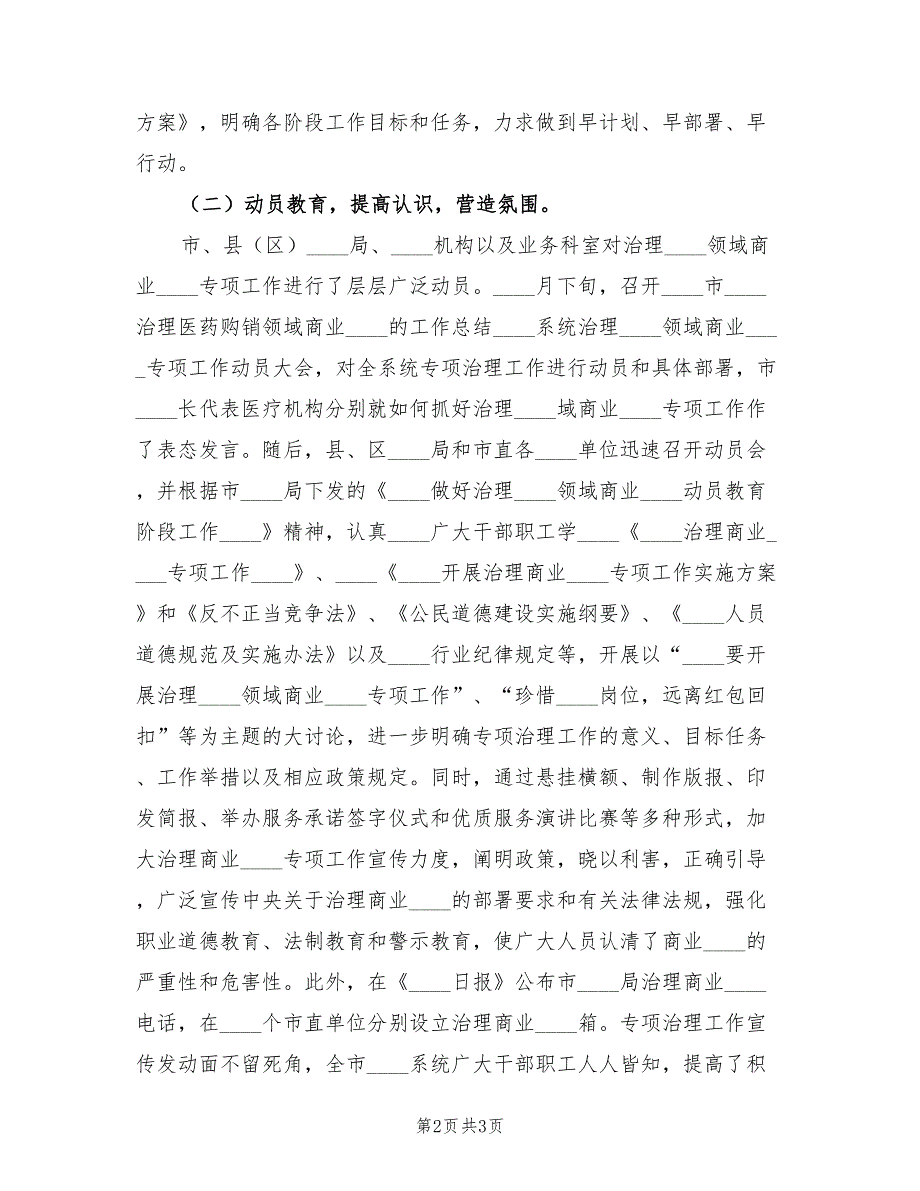 方案》，明确各阶段工作目标和任务，力求做到早计划、早部署、早
行动。
（二）动员教育，提高认识，营造氛围。
市、县（区）____局、____机构以及业务科室对治理____领域商
业____专项工作进行了层层广泛动员。____月下旬，召开____市____
治理医药购销领域商业____的工作总结____系统治理____领域商业___
_专项工作动员大会，对全系统专项治理工作进行动员和具体部署，市
____长代表医疗机构分别就如何抓好治理____域商业____专项工作作
了表态发言。随后，县、区____局和市直各____单位迅速召开动员会
，并根据市____局下发的《____做好治理____领域商业____动员教育
阶段工作____》精神，认真____广大干部职工学____《____治理商业_
___专项工作____》、____《____开展治理商业____专项工作实施方案
》和《反不正当竞争法》、《公民道德建设实施纲要》、《____人员
道德规范及实施办法》以及____行业纪律规定等，开展以“____要开
展治理____领域商业____专项工作”、“珍惜____岗位，远离红包回
扣”等为主题的大讨论，进一步明确专项治理工作的意义、目标任务
、工作举措以及相应政策规定。同时，通过悬挂横额、制作版报、印
发简报、举办服务承诺签字仪式和优质服务演讲比赛等多种形式，加
大治理商业____专项工作宣传力度，阐明政策，晓以利害，正确引导
，广泛宣传中央关于治理商业____的部署要求和有关法律法规，强化
职业道德教育、法制教育和警示教育，使广大人员认清了商业____的
严重性和危害性。此外，在《____日报》公布市____局治理商业____
电话，在____个市直单位分别设立治理商业____箱。专项治理工作宣
传发动面不留死角，全市____系统广大干部职工人人皆知，提高了积
第2页共3页